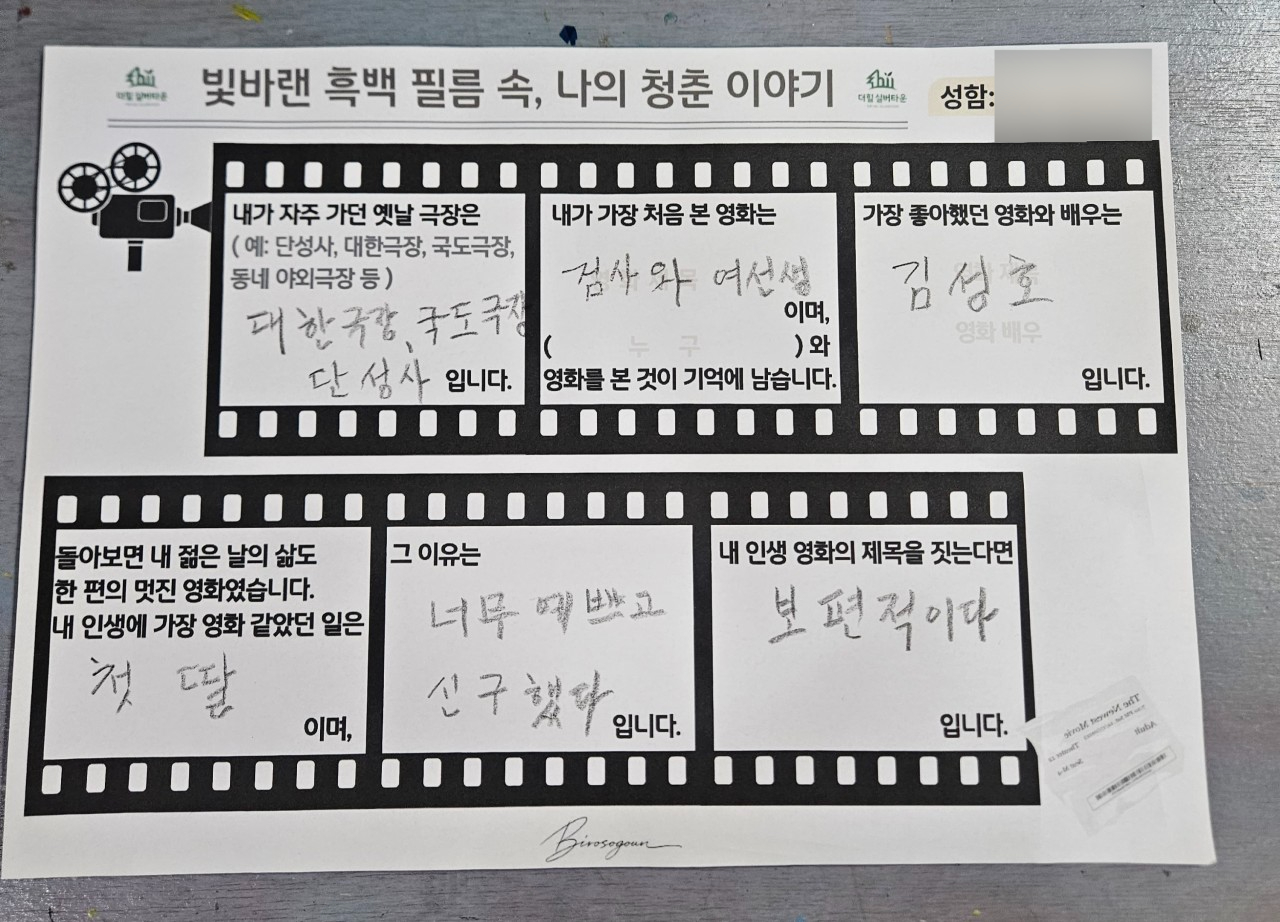 더힐 실버타운
빛바랜 흑백 필름 속, 나의 청춘 이야기
더힐 실버타운
성함:
내가 자주 가던 옛날 극장은
( 예: 단성사, 대한극장, 국도극장,
동네 야외극장 등 )
대한극장, 국도극장
단성사 입니다.
내가 가장 처음 본 영화는
검사와 여선생
이며,
( 누 구 ) 와
영화를 본 것이 기억에 남습니다.
가장 좋아했던 영화와 배우는
김성호
영화 배우
입니다.
돌아보면 내 젊은 날의 삶도
한 편의 멋진 영화였습니다.
내 인생에 가장 영화 같았던 일은
첫 딸
이며,
그 이유는
너무 예쁘고
신구했다 입니다.
내 인생 영화의 제목을 짓는다면
보편적이다
입니다.
The Newest Movie
Adult
Birosogoun